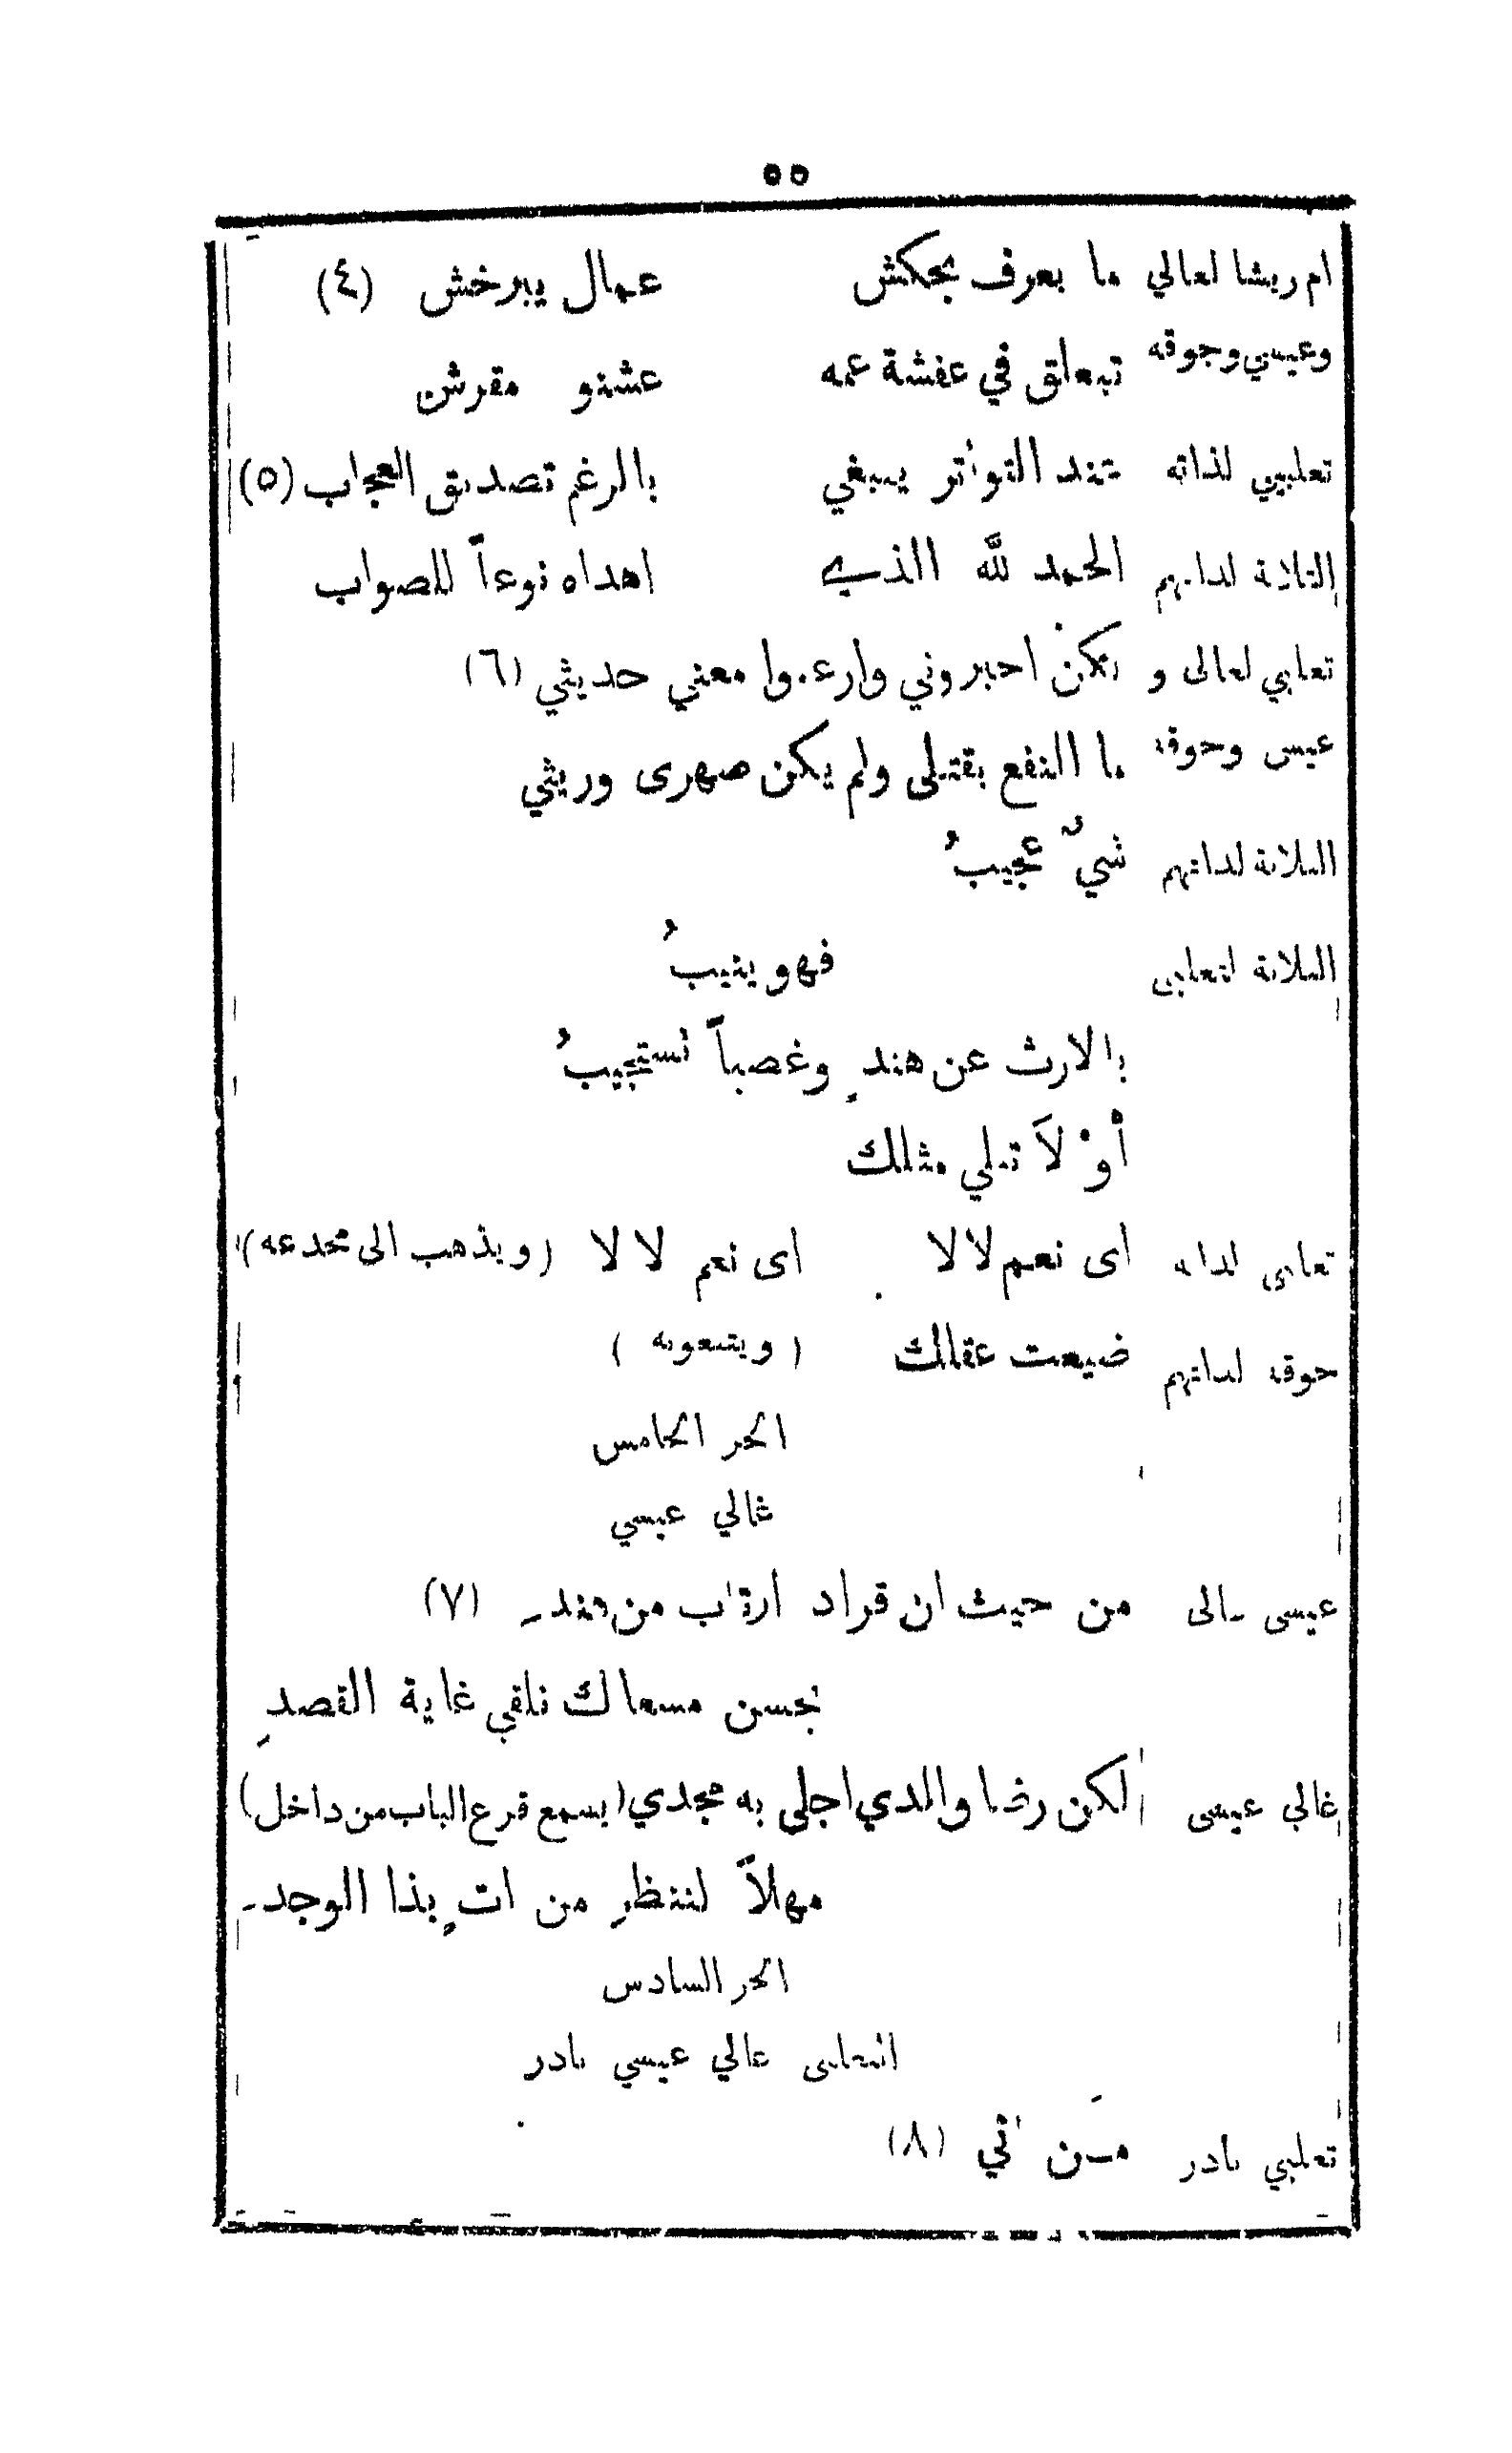 ٥٥
ام ريشا لغالي ما بعرف بحكش عمال يبرخش (٤)
وعيسى وجوقه تبعلق في عفشة عمه عشنو مقرش
تعلبي لذاته عند التواتر ينبغي بالرغم تصديق العجاب (٥)
الثلاثة لذاتهم الحمد لله الذي اهداه نوعاً للصواب
تعلبي لغالي و لكن اخبروني وارعوا معني حديثي (٦)
عيسى وجوقه ما النفع بقتلى ولم يكن صهرى وريثي
الثلاثة لذاتهم شيٌ عجيبُ
الثلاثة لتعلبي فهو ينيبُ
بالارث عن هندٍ وغصباً نستجيبُ
أوْ لاَ تبلي مثلك
تعلبي لذاته اى نعم لا لا اى نعم لا لا (ويذهب الى مخدعه)
جوقه لذاتهم ضيعت عقلك (ويتبعونه)
الجزء الخامس
غالي عيسي
عيسى غالى من حيث ان قراد ارتاب من هندِ (٧)
بحسن مسعاك نلقي غاية القصدِ
غالي عيسى لكن رضا والدي اجلى به مجدي (يسمع قرع الباب من داخل)
مهلاً لننظر من اتٍ بذا الوجدِ
الجزء السادس
التعلبي غالي عيسي نادر
تعلبي نادر مَن اتي (٨)